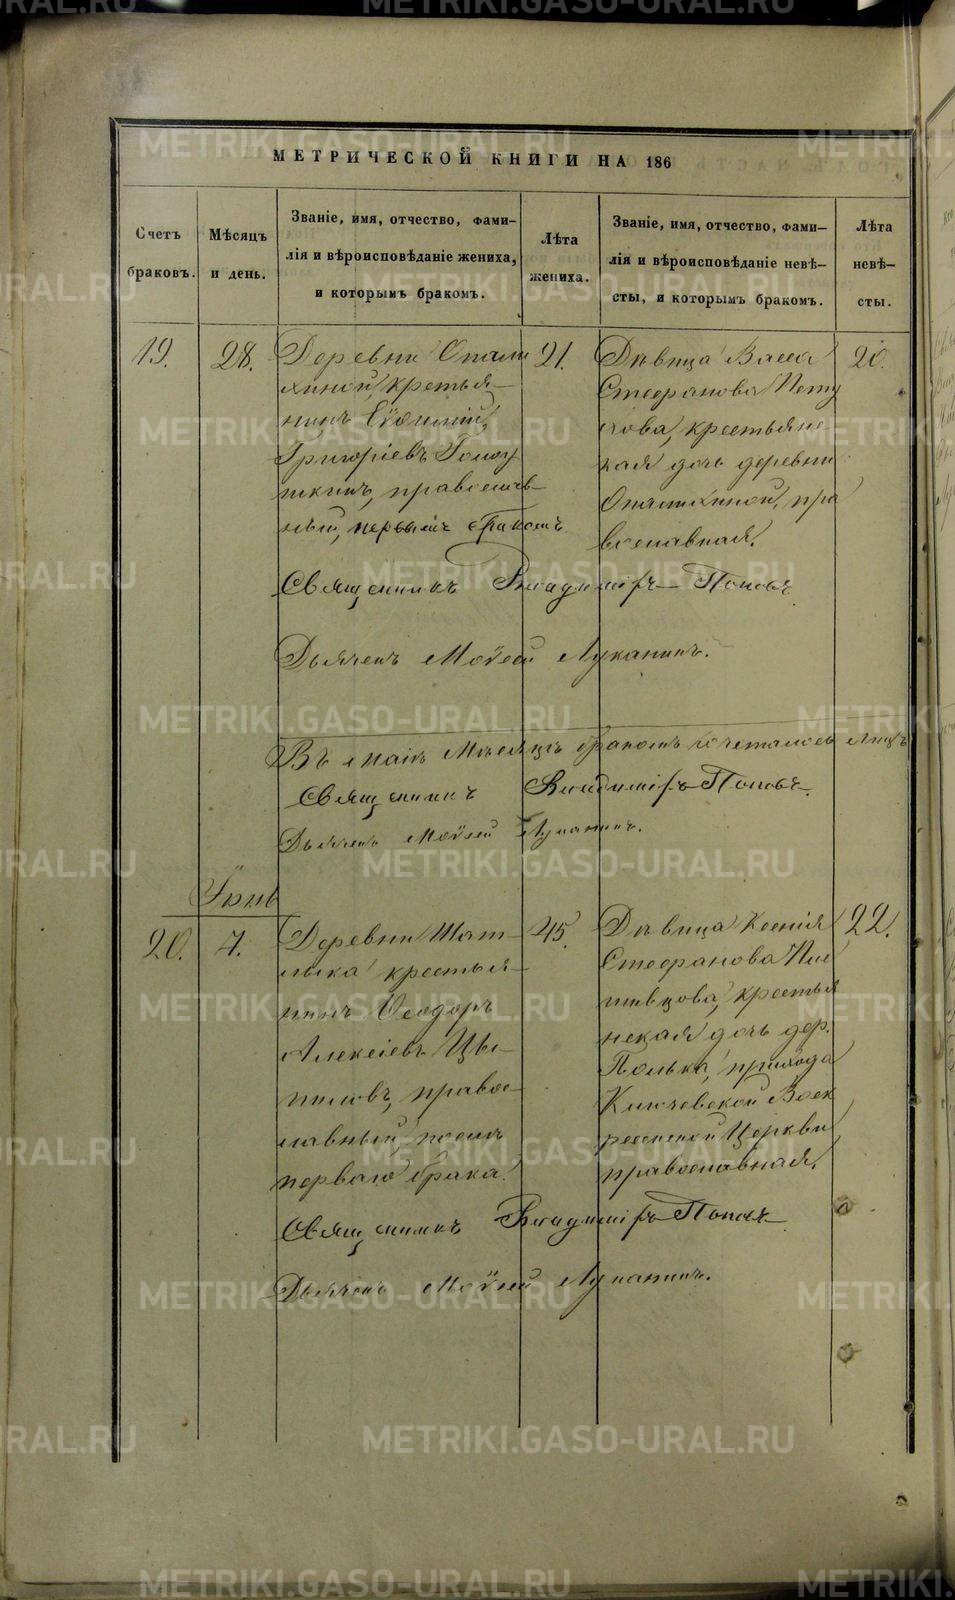 МЕТРИЧЕСКОЙ КНИГИ НА 186
Счетъ браковъ.
Мѣсяцъ и день.
Званіе, имя, отчество, фами-
лія и вѣроисповѣданіе жениха,
и которымъ бракомъ.
Лѣта жениха.
Званіе, имя, отчество, фами-
лія и вѣроисповѣданіе невѣ-
сты, и которымъ бракомъ.
Лѣта невѣ-
сты.
19.
28.
Деревни Опали
хиной, крестья-
нинъ Евѳимій
Григоріевъ
православ-
ный, первымъ бракомъ
21.
Дѣвица Васса
Стефанова Пету
хова, крестьянс
кая дочь деревни
Опалихиной, пра
вославная.
20.
Священникъ Владиміръ Поповъ
Дьячекъ Моѵсей Луканинъ.
Въ маѣ мѣсяцѣ бракомъ сочеталось лицъ
Священникъ Владиміръ Поповъ
Дьячекъ Моѵсей Луканинъ.
Іюнь
20.
7.
Деревни Шат-
лыка крестья-
нинъ Ѳеодоръ
Алексіевъ Цы-
пиловъ, правос-
лавный, послѣ
перваго брака.
45.
Дѣвица Ксенія
Стефанова
крестья
нская дочь дер.
Полька, прихода
Ключевской Воск
ресенской Церкви
православная.
22.
Священникъ Владиміръ Поповъ
Дьячекъ Моѵсей Луканинъ.
METRIKI.GASO-URAL.RU